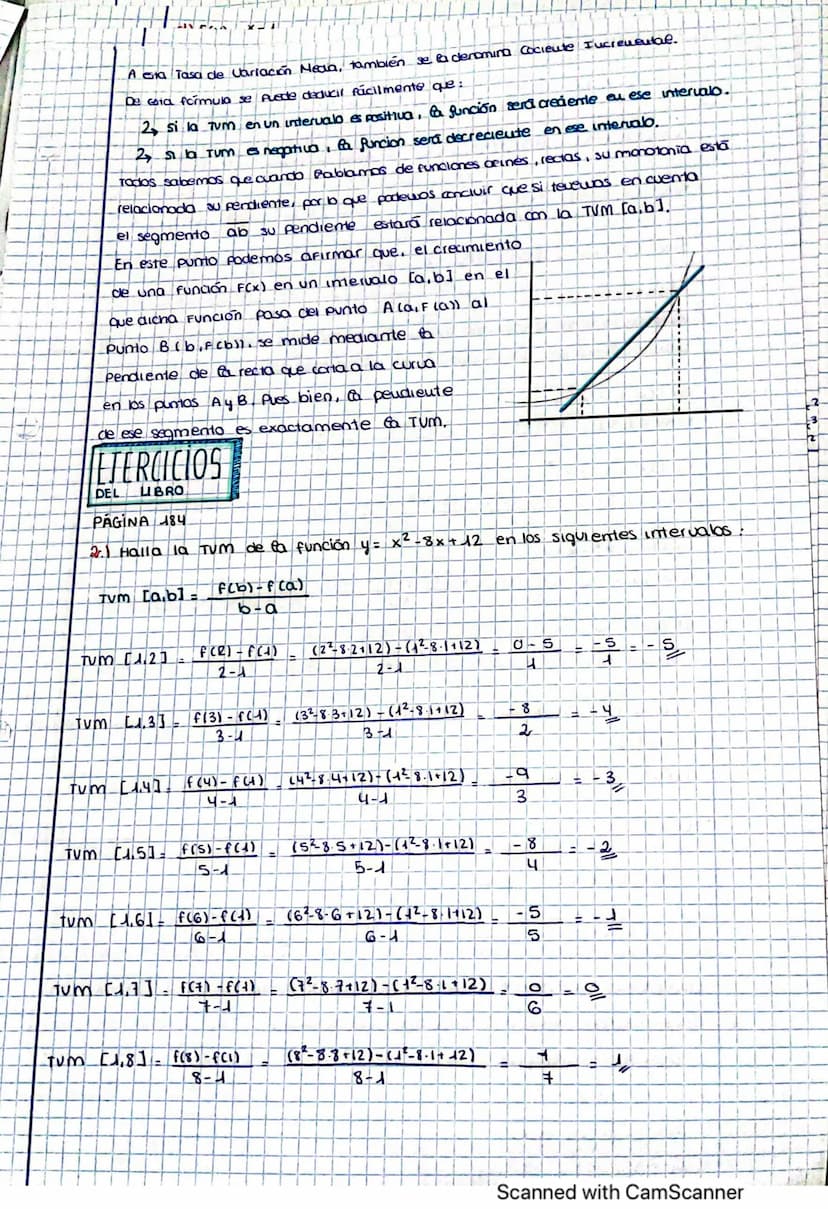 A esta Tasa de Variación Media, también se la denomina Cociente Incremental.
De esta fórmula se puede deducir fácilmente que:
si la TVM en un intervalo es positiva, la función será creciente en ese intervalo.
si la TVM es negativa, la función será decreciente en ese intervalo.
Todos sabemos que cuando hablamos de funciones afines, rectas, su monotonía está
relacionada su pendiente, por lo que podemos concluir que si tenemos en cuenta
el segmento ab su pendiente estará relacionada con la TVM [a,b].
En este punto podemos afirmar que, el crecimiento
de una función F(x) en un intervalo [a,b] en el
que dicha función pasa del punto A(a,F(a)) al
punto B(b,F(b)), se mide mediante la
pendiente de la recta que corta a la curva
en los puntos A y B. Pues bien, la pendiente
de ese segmento es exactamente la TVM.
EJERCICIOS
DEL LIBRO
PÁGINA 184
2.) Halla la TVM de la función y= x²-8x+12 en los siguientes intervalos:
TVM [a,b] = f(b)-f(a) / b-a
TVM [1,2] = f(2)-f(1) / 2-1 = (2²-8·2+12)-(1²-8·1+12) / 2-1 = 0-5 / 1 = -5 / 1 = -5
TVM [1,3] = f(3)-f(1) / 3-1 = (3²-8·3+12)-(1²-8·1+12) / 3-1 = -8 / 2 = -4
TVM [1,4] = f(4)-f(1) / 4-1 = (4²-8·4+12)-(1²-8·1+12) / 4-1 = -9 / 3 = -3
TVM [1,5] = f(5)-f(1) / 5-1 = (5²-8·5+12)-(1²-8·1+12) / 5-1 = -8 / 4 = -2
TVM [1,6] = f(6)-f(1) / 6-1 = (6²-8·6+12)-(1²-8·1+12) / 6-1 = -5 / 5 = -1
TVM [1,7] = f(7)-f(1) / 7-1 = (7²-8·7+12)-(1²-8·1+12) / 7-1 = 0 / 6 = 0
TVM [1,8] = f(8)-f(1) / 8-1 = (8²-8·8+12)-(1²-8·1+12) / 8-1 = 7 / 7 = 1
Scanned with CamScanner